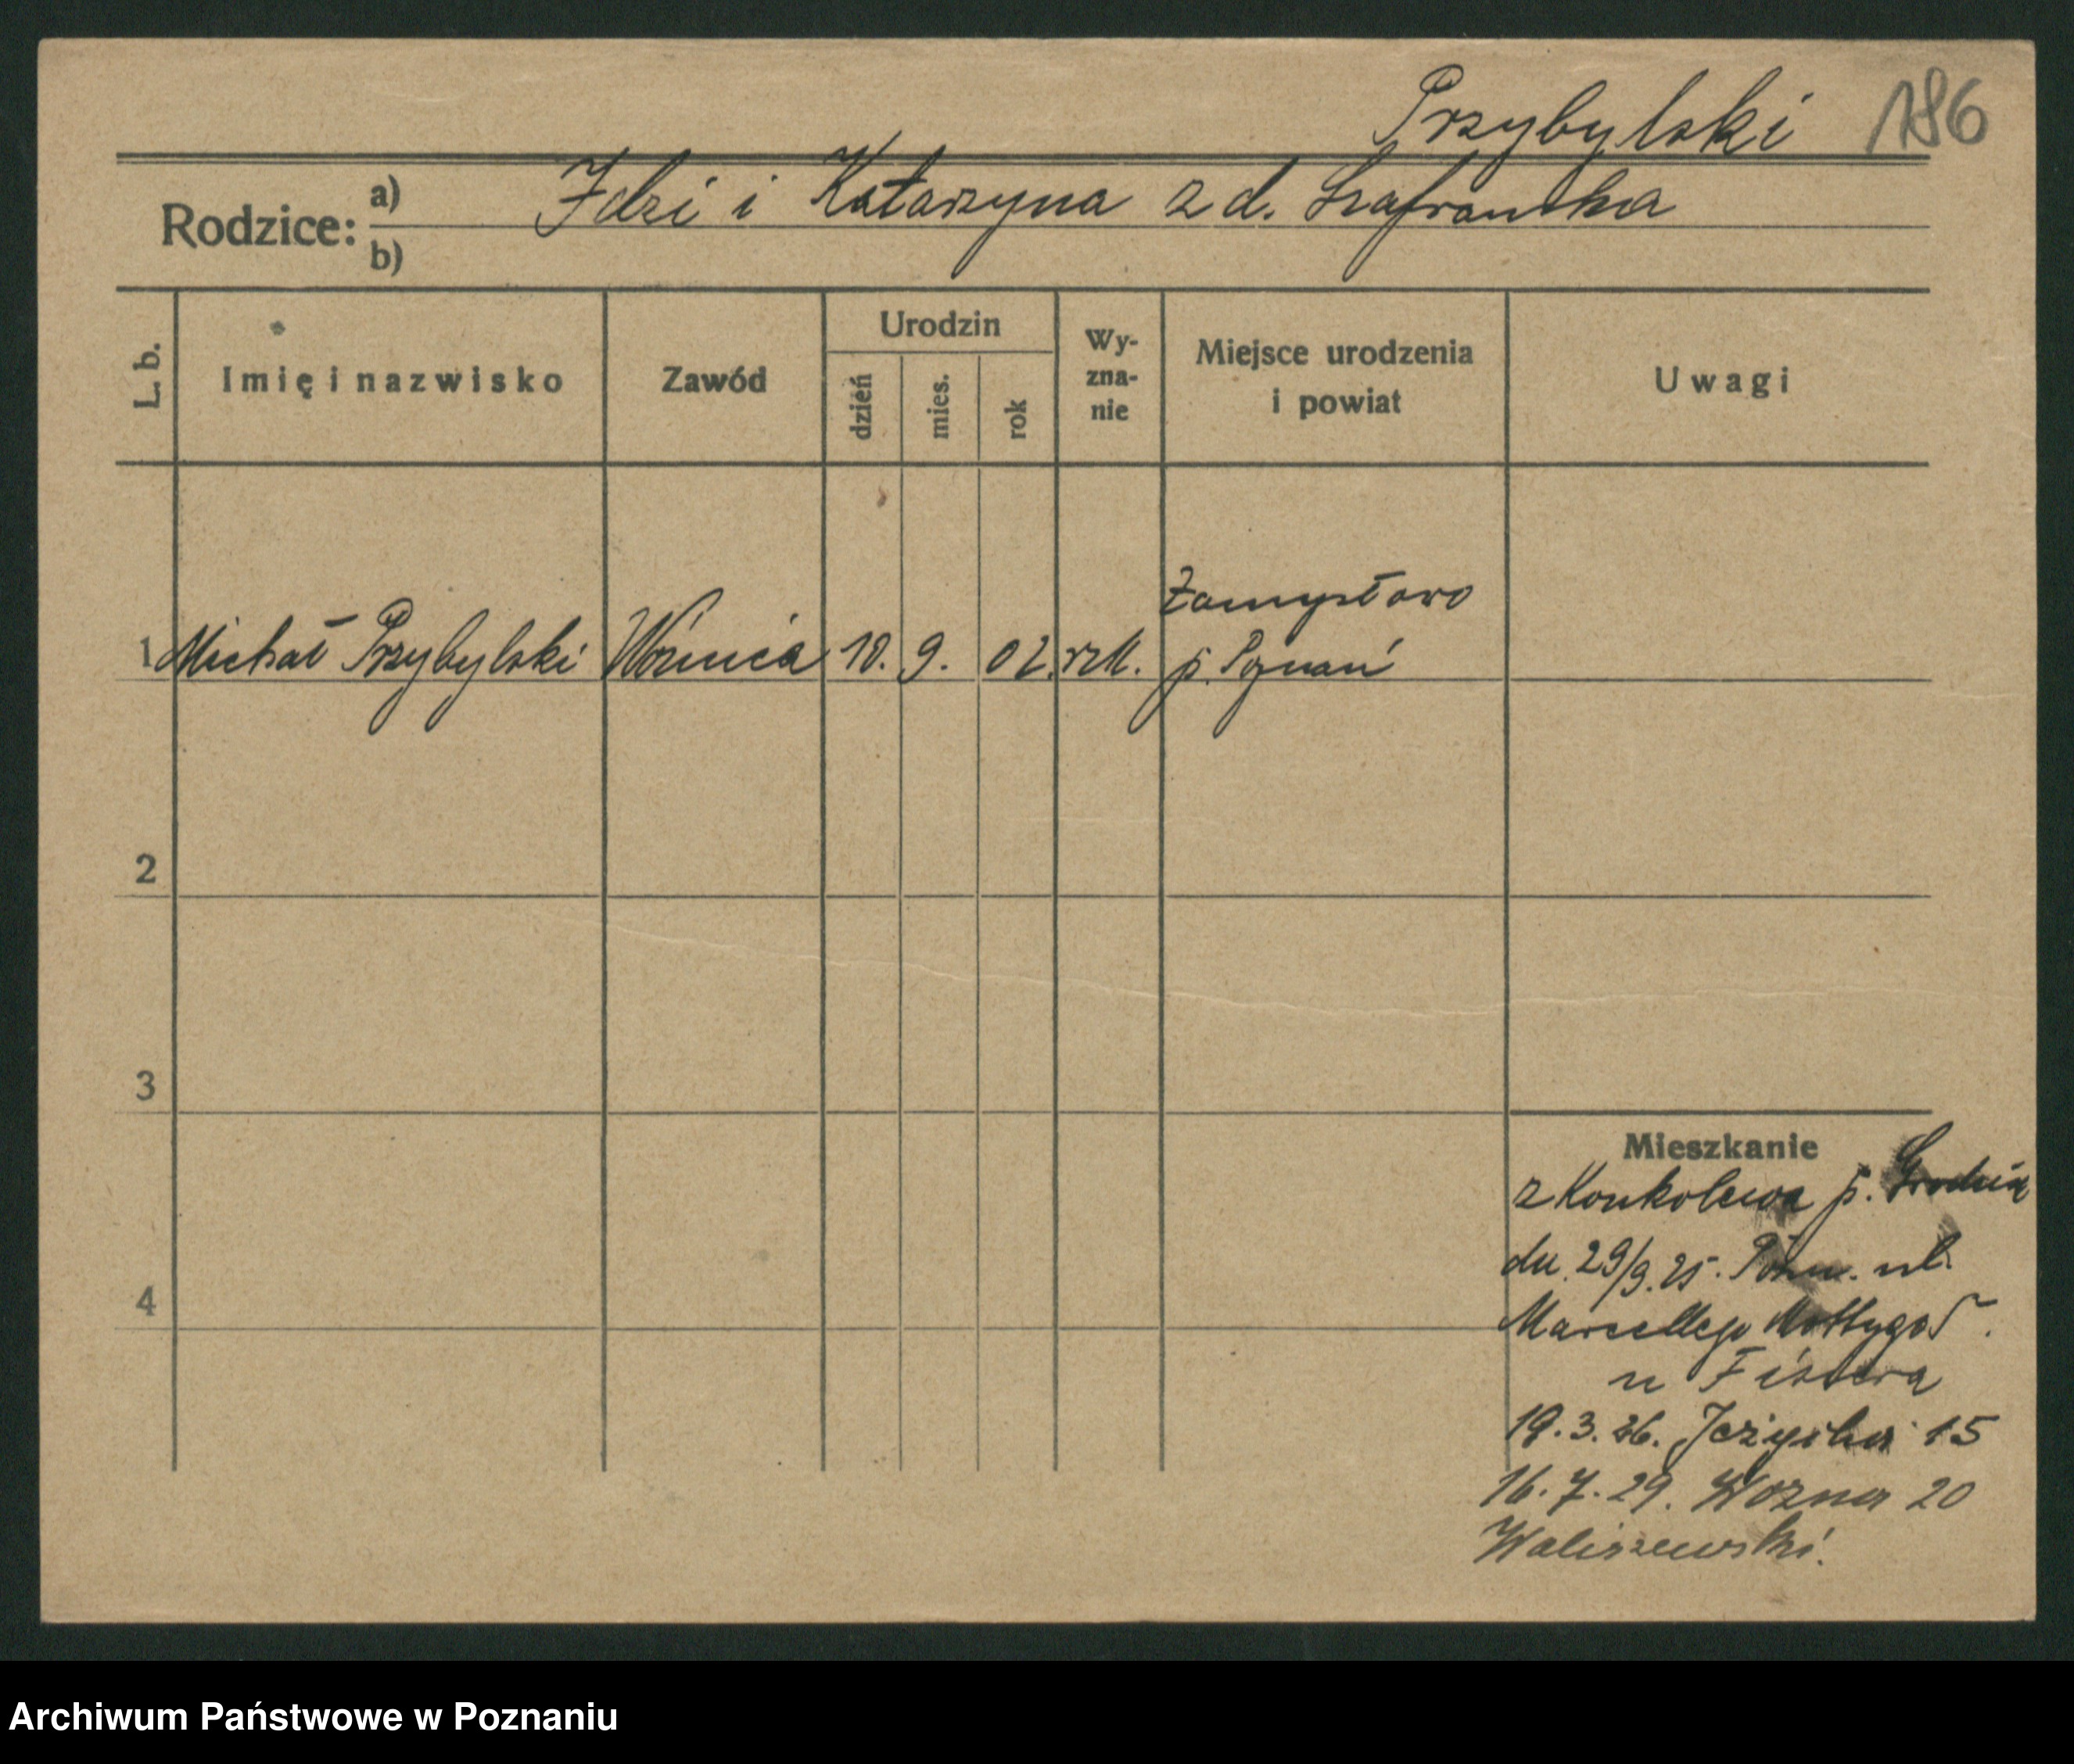 Przybylski 186
Rodzice: a) Idzi i Katarzyna z d. Szafrańska
b)
L. b. Imię i nazwisko Zawód Urodzin dzień mies. rok Wy-zna-nie Miejsce urodzenia i powiat Uwagi
Zamysłowo
1 Michał Przybylski Woźnica 10. 9. 02. rzk. p. Poznań
2
3
Mieszkanie
z Konkolewa p. Grodzisk
dn. 29/9.25. Pozn. ul.
4
Marcellego Mottygo
u Fistera
19.3.26. Jeżycka 15
16.7.29. Wozna 20
Waliszewski.
Archiwum Państwowe w Poznaniu